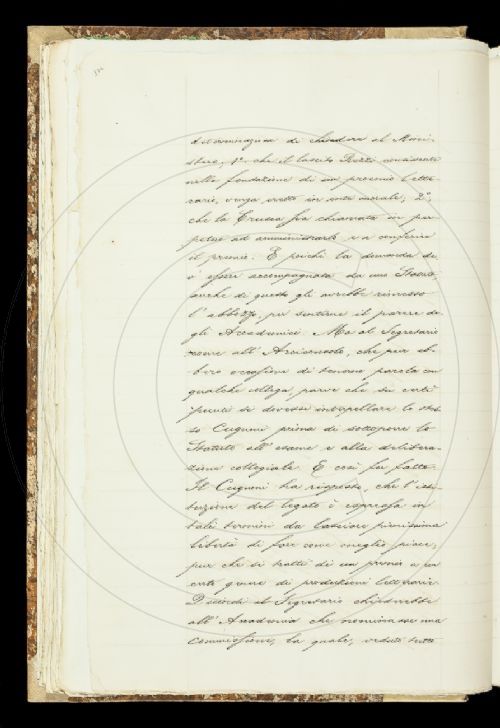 di chiedere al Mini-
stero, 1°. che il lascito Rezzi consistente
nella fondazione di un premio lette-
rario, venga eretto in ente morale; 2°,
che la Crusca sia chiamata in per-
petuo ad amministrarlo e a conferire
il premio. E poichè la domanda de-
v'essere accompagnata da uno Statuto,
anche di questo gli avrebbe rimesso
l'abbozzo, per sentirne il parere de-
gli Accademici. Ma al Segretario
come all'Arciconsolo, che pur eb-
bero occasione di tenerne parola con
qualche collega, parve che su certi
punti si dovesse interpellare lo stes-
so Cugnoni prima di sottoporre lo
Statuto all'esame e alla delibera-
zione collegiale. E così fu fatto.
Il Cugnoni ha risposto, che l'isti-
tuzione del legato è espressa in
tali termini da lasciare pienissima
libertà di fare come meglio piace,
pur che si tratti di un premio a un
certo genere di produzioni letterarie.
il Segretario chiederebbe
all'Accademia che nominasse una
Commissione, la quale, veduto tutto